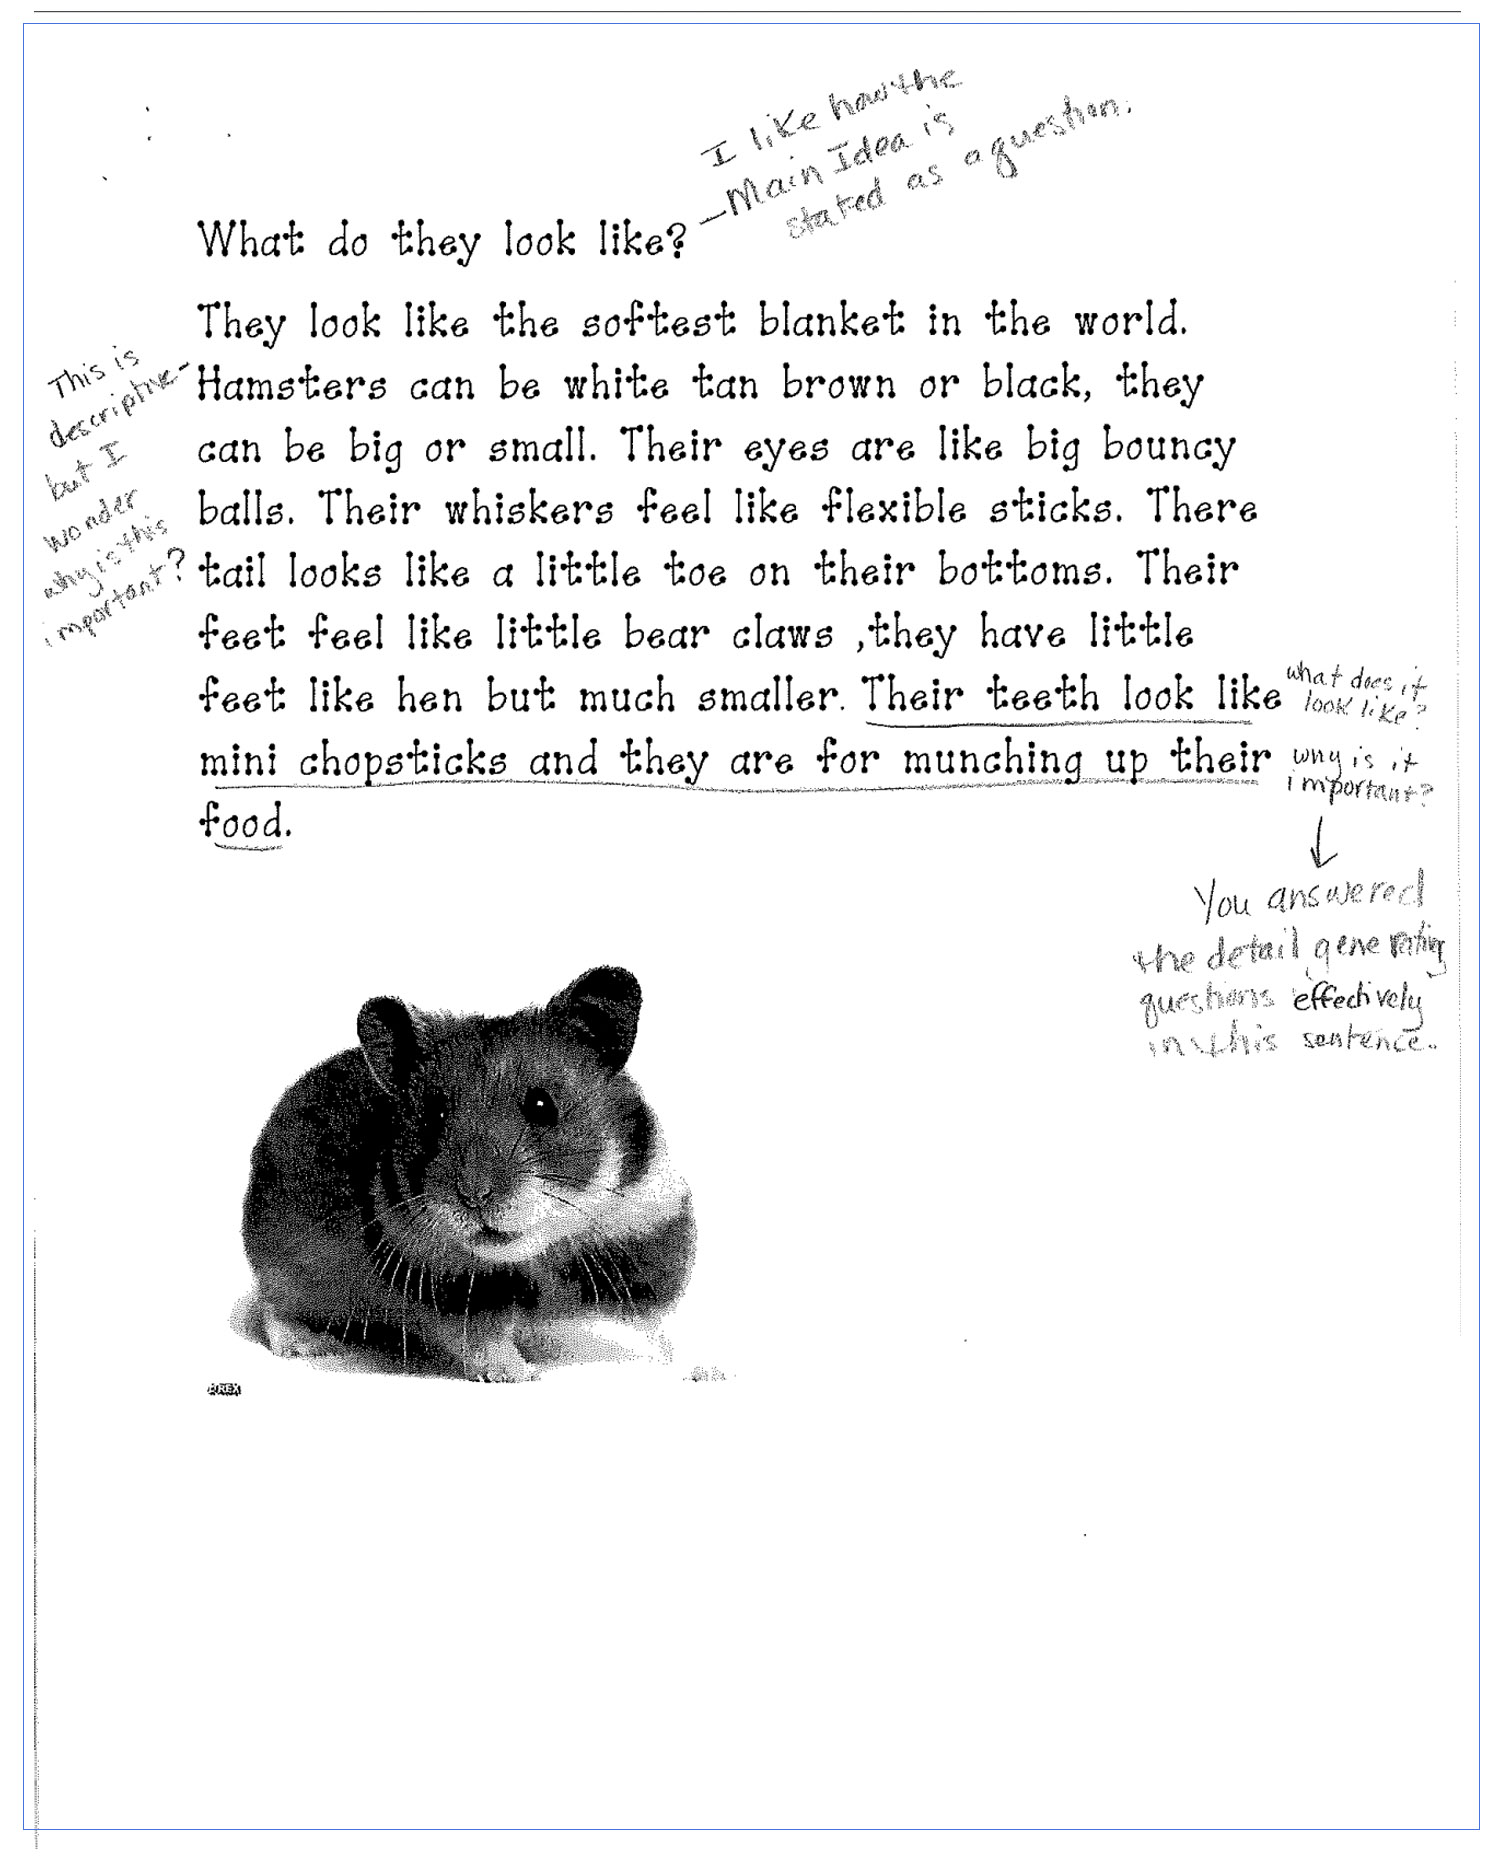 I like how the
— Main Idea is
stated as a question.
What do they look like?
They look like the softest blanket in the world.
Hamsters can be white tan brown or black, they
can be big or small. Their eyes are like big bouncy
balls. Their whiskers feel like flexible sticks. There
tail looks like a little toe on their bottoms. Their
feet feel like little bear claws ,they have little
feet like hen but much smaller. Their teeth look like
mini chopsticks and they are for munching up their
food.
This is
descriptive-
but I
wonder
why is this
important?
what does it
look like?
why is it
important?
You answered
the detail generating
questions effectively
in this sentence.